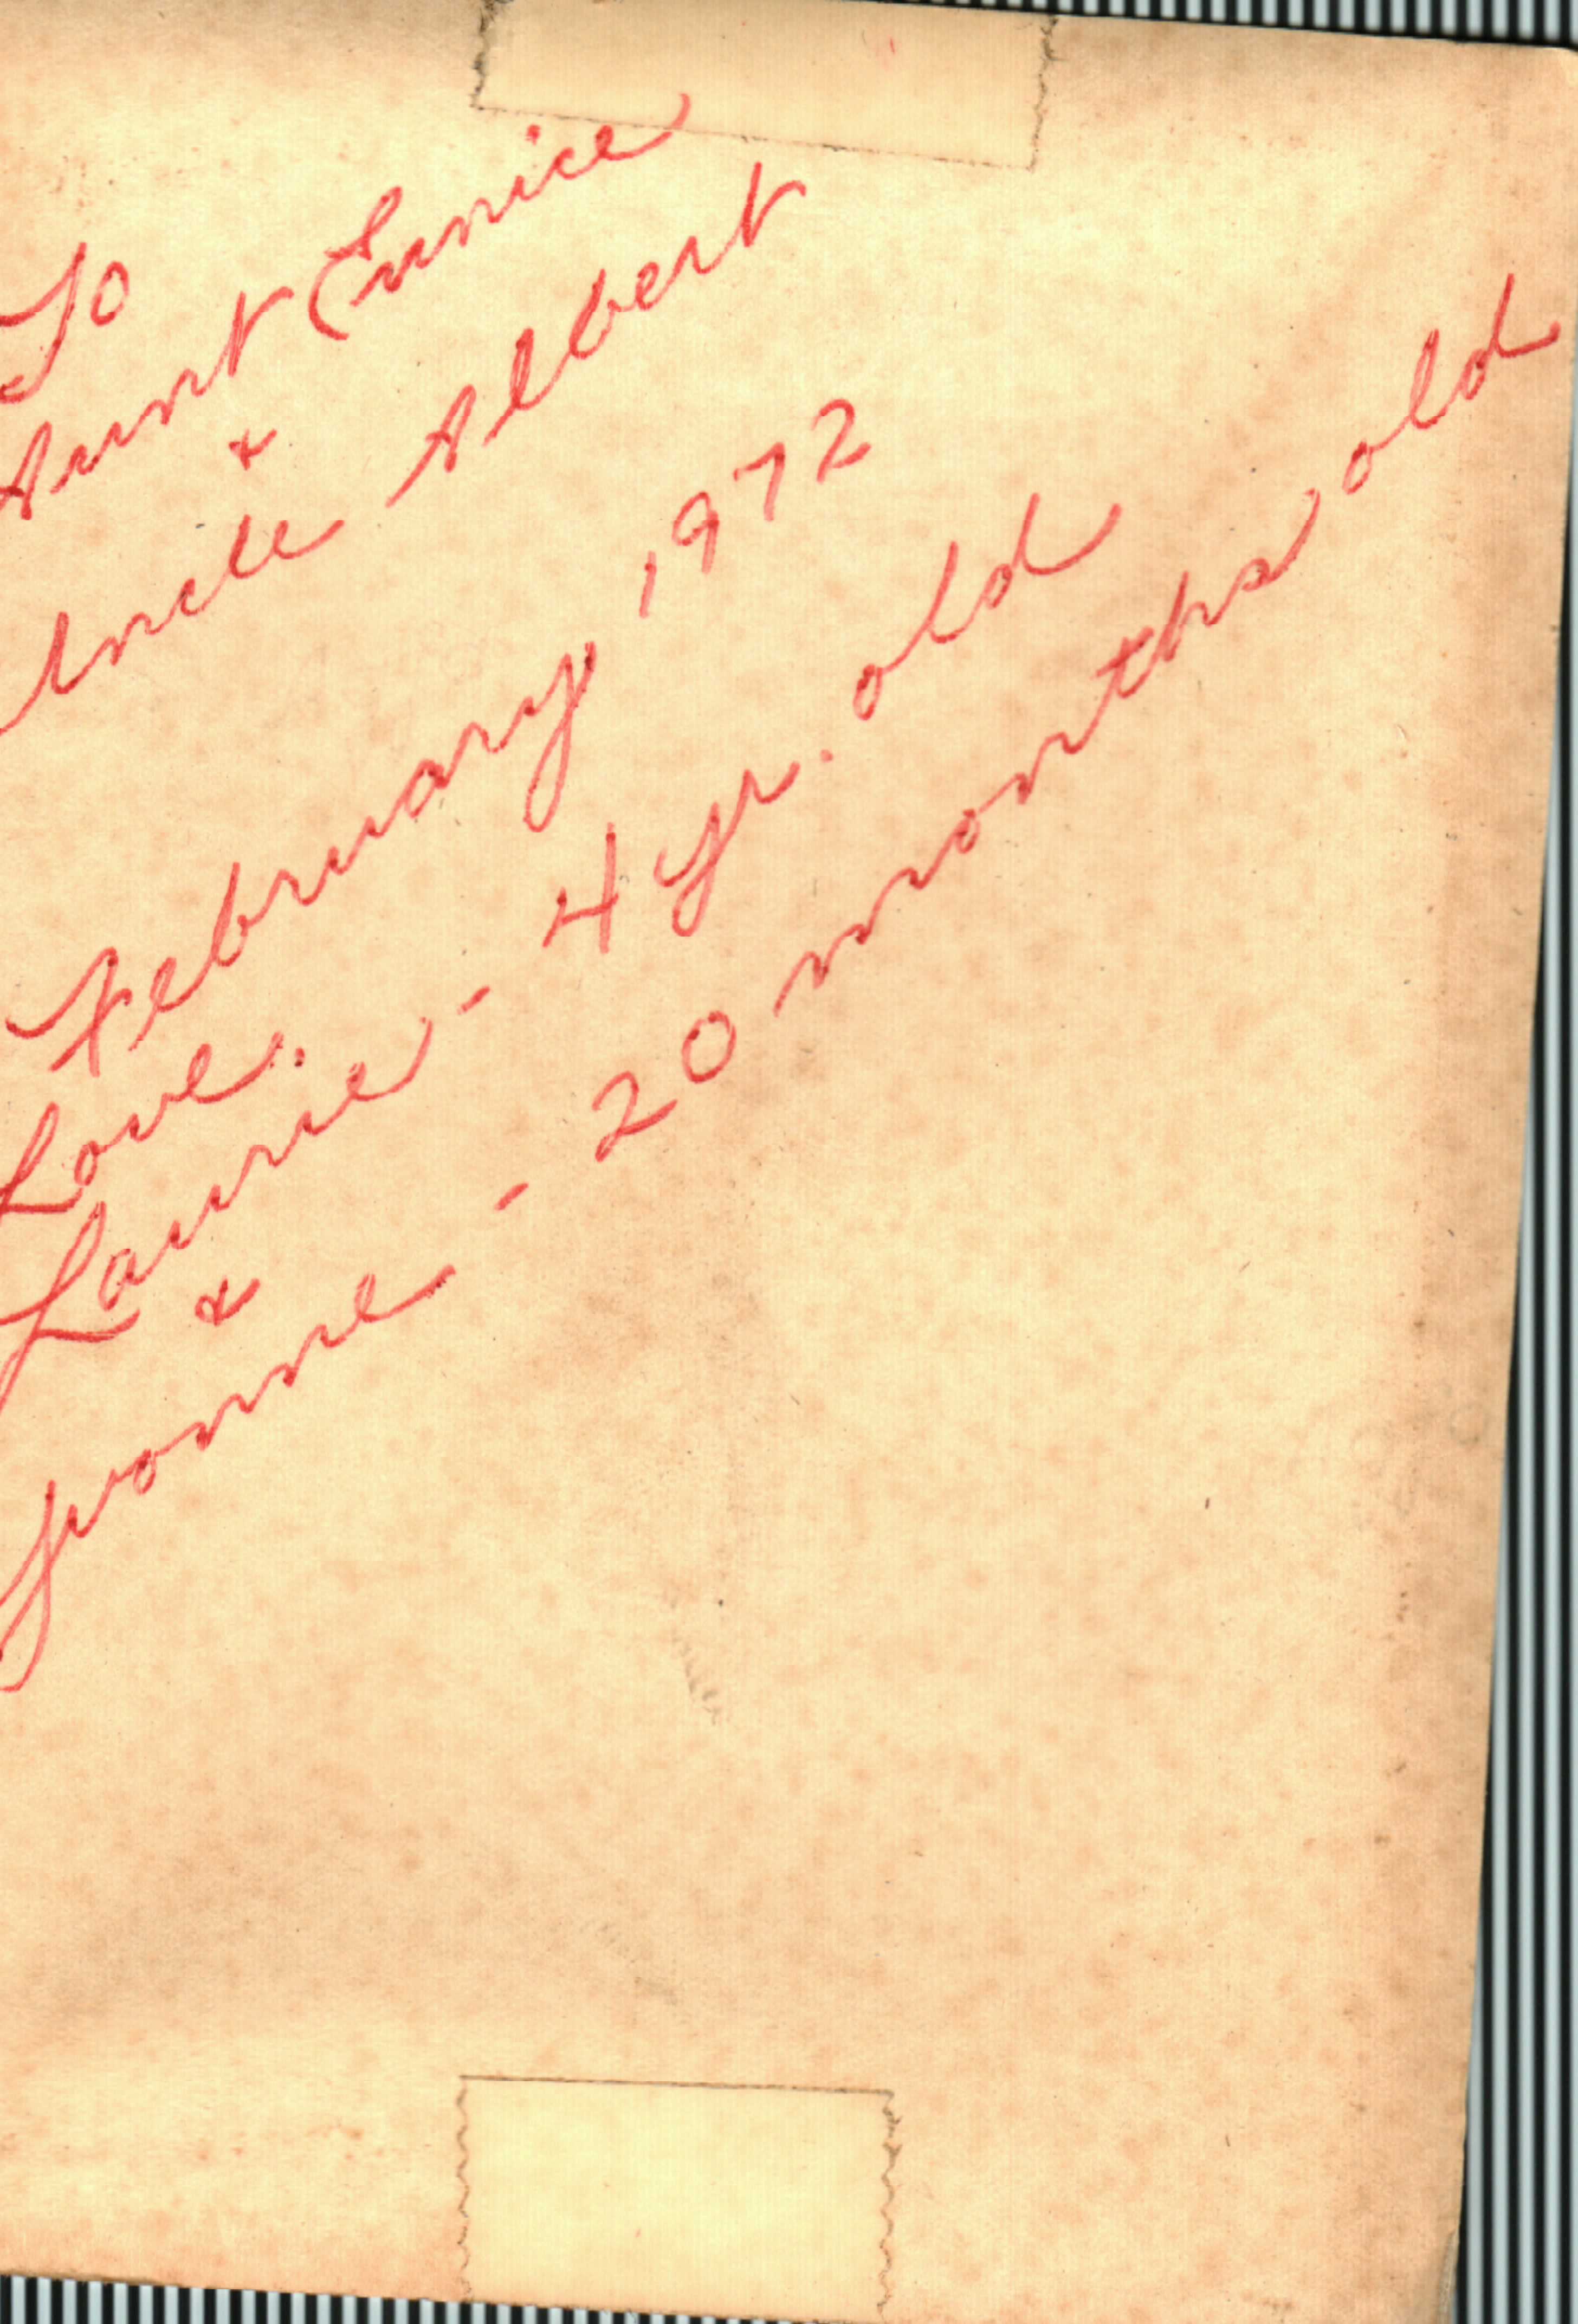 To
Aunt Eunice
&
Uncle Albert
February 1972
Love.
Laurie - 4 yr. old
&
Yvonne - 20 months old